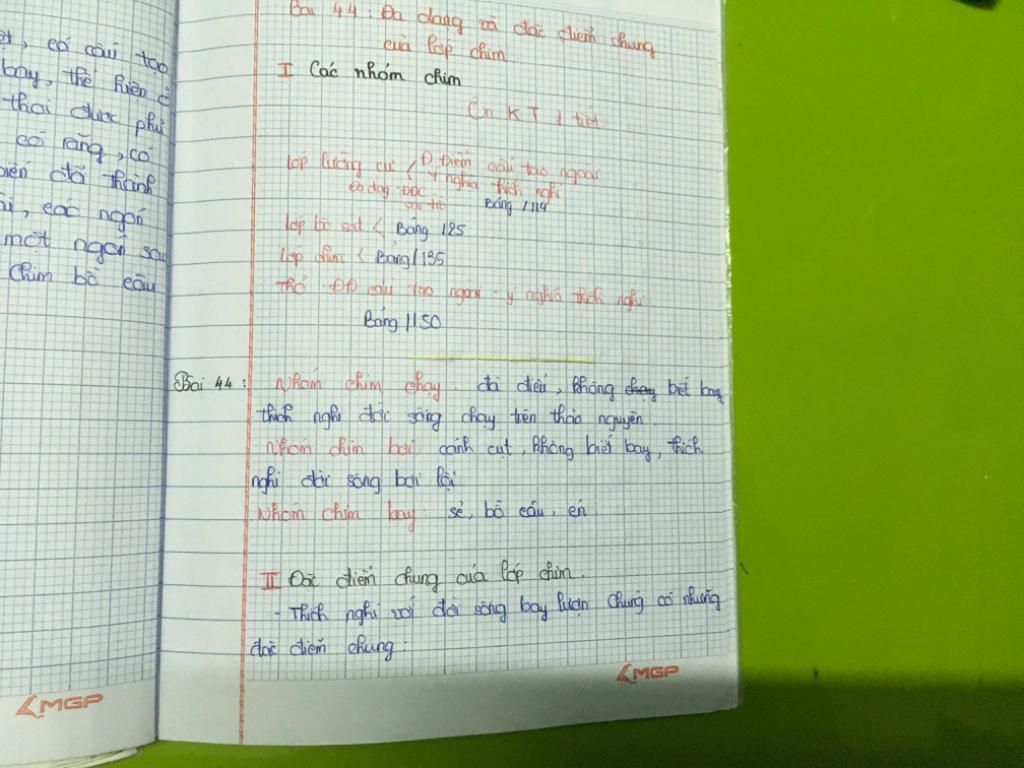 ět, có cấu tạo
bay, thể hiện ở
thai được phủ
có răng, có
biến đổi thành
ơi, các ngón
một ngón sau
Chim bồ câu
MGP
Bài 44: Đa dạng và đặc điểm chung
của lớp chim
I Các nhóm chim
Ôn KT 1 tiết
lớp lưỡng cư < Đ điểm cấu tạo ngoài
ý nghĩa thích nghi
Đa dạng
Bảng / 114
lớp bò sát < Bảng 125
lớp chim < Bảng / 135
Thỏ ĐĐ cấu tạo ngoài - ý nghĩa thích nghi
Bảng / 150
Bài 44: Nhóm chim chạy đà điểu, không chạy biết bay
thích nghi đời sống chạy trên thảo nguyên.
Nhóm chim bơi cánh cụt, không biết bay, thích
nghi đời sống bơi lội
Nhóm chim bay: sẻ, bồ câu, én
II Đặc điểm chung của lớp chim.
- Thích nghi với đời sống bay lượn chúng có những
đặc điểm chung:
MGP